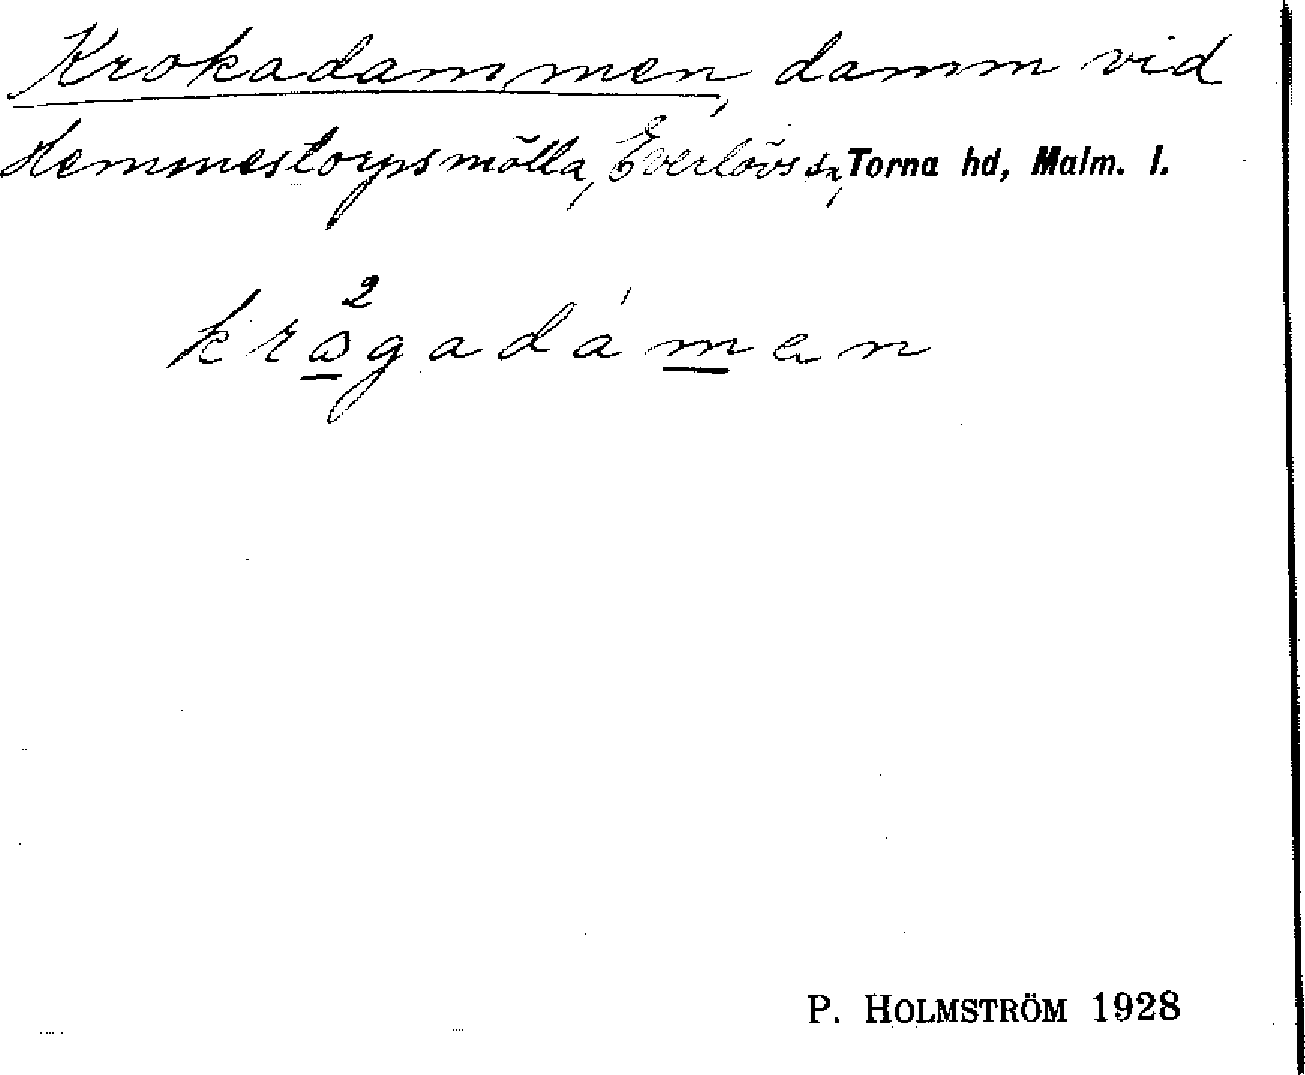 Krokadammen, damm vid
Hemmestorpsmölla, Everlövs sn, Torna hd, Malm. l.
krågadámen
P. HOLMSTRÖM 1928